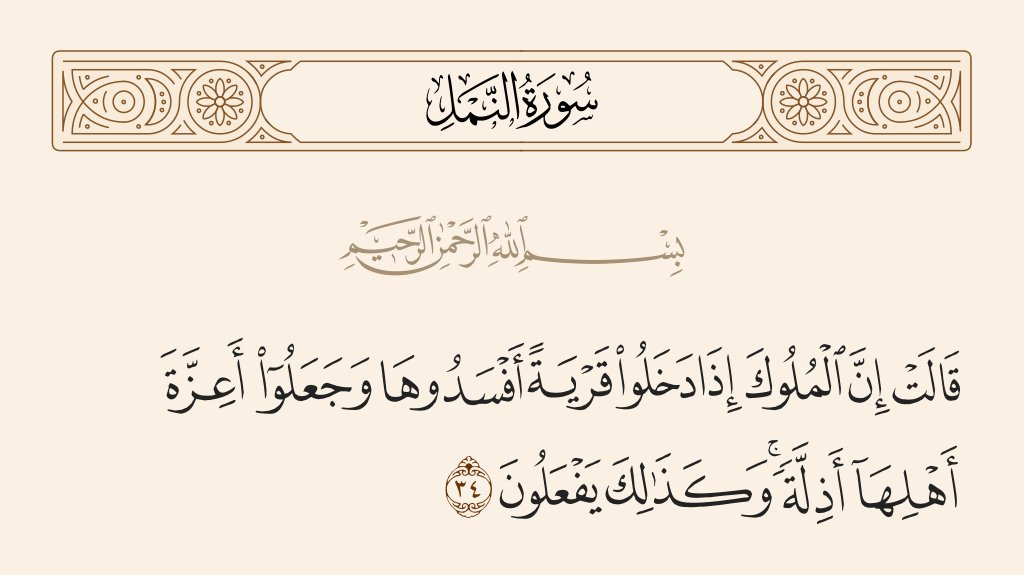 سُورَةُ النَّمْلِ
بِسْمِ ٱللَّهِ ٱلرَّحْمَٰنِ ٱلرَّحِيمِ
قَالَتْ إِنَّ ٱلْمُلُوكَ إِذَا دَخَلُوا۟ قَرْيَةً أَفْسَدُوهَا وَجَعَلُوٓا۟ أَعِزَّةَ
أَهْلِهَآ أَذِلَّةً ۖ وَكَذَٰلِكَ يَفْعَلُونَ ٣٤